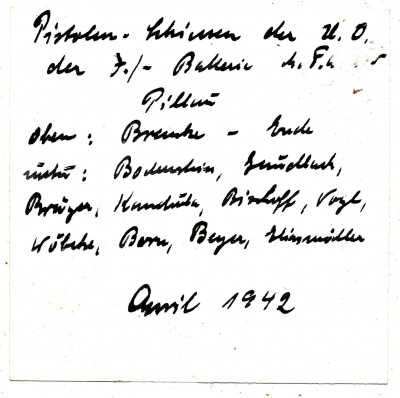 Pistolen-Schiessen der U.O.
der 7./- Batterie
Pillau
oben: Bremke - Ende
unten: Bodenstein, Gundlach,
Krüger, Kandula, Bischoff, Vogl,
Wöbcke, Born, Beyer,
April 1942